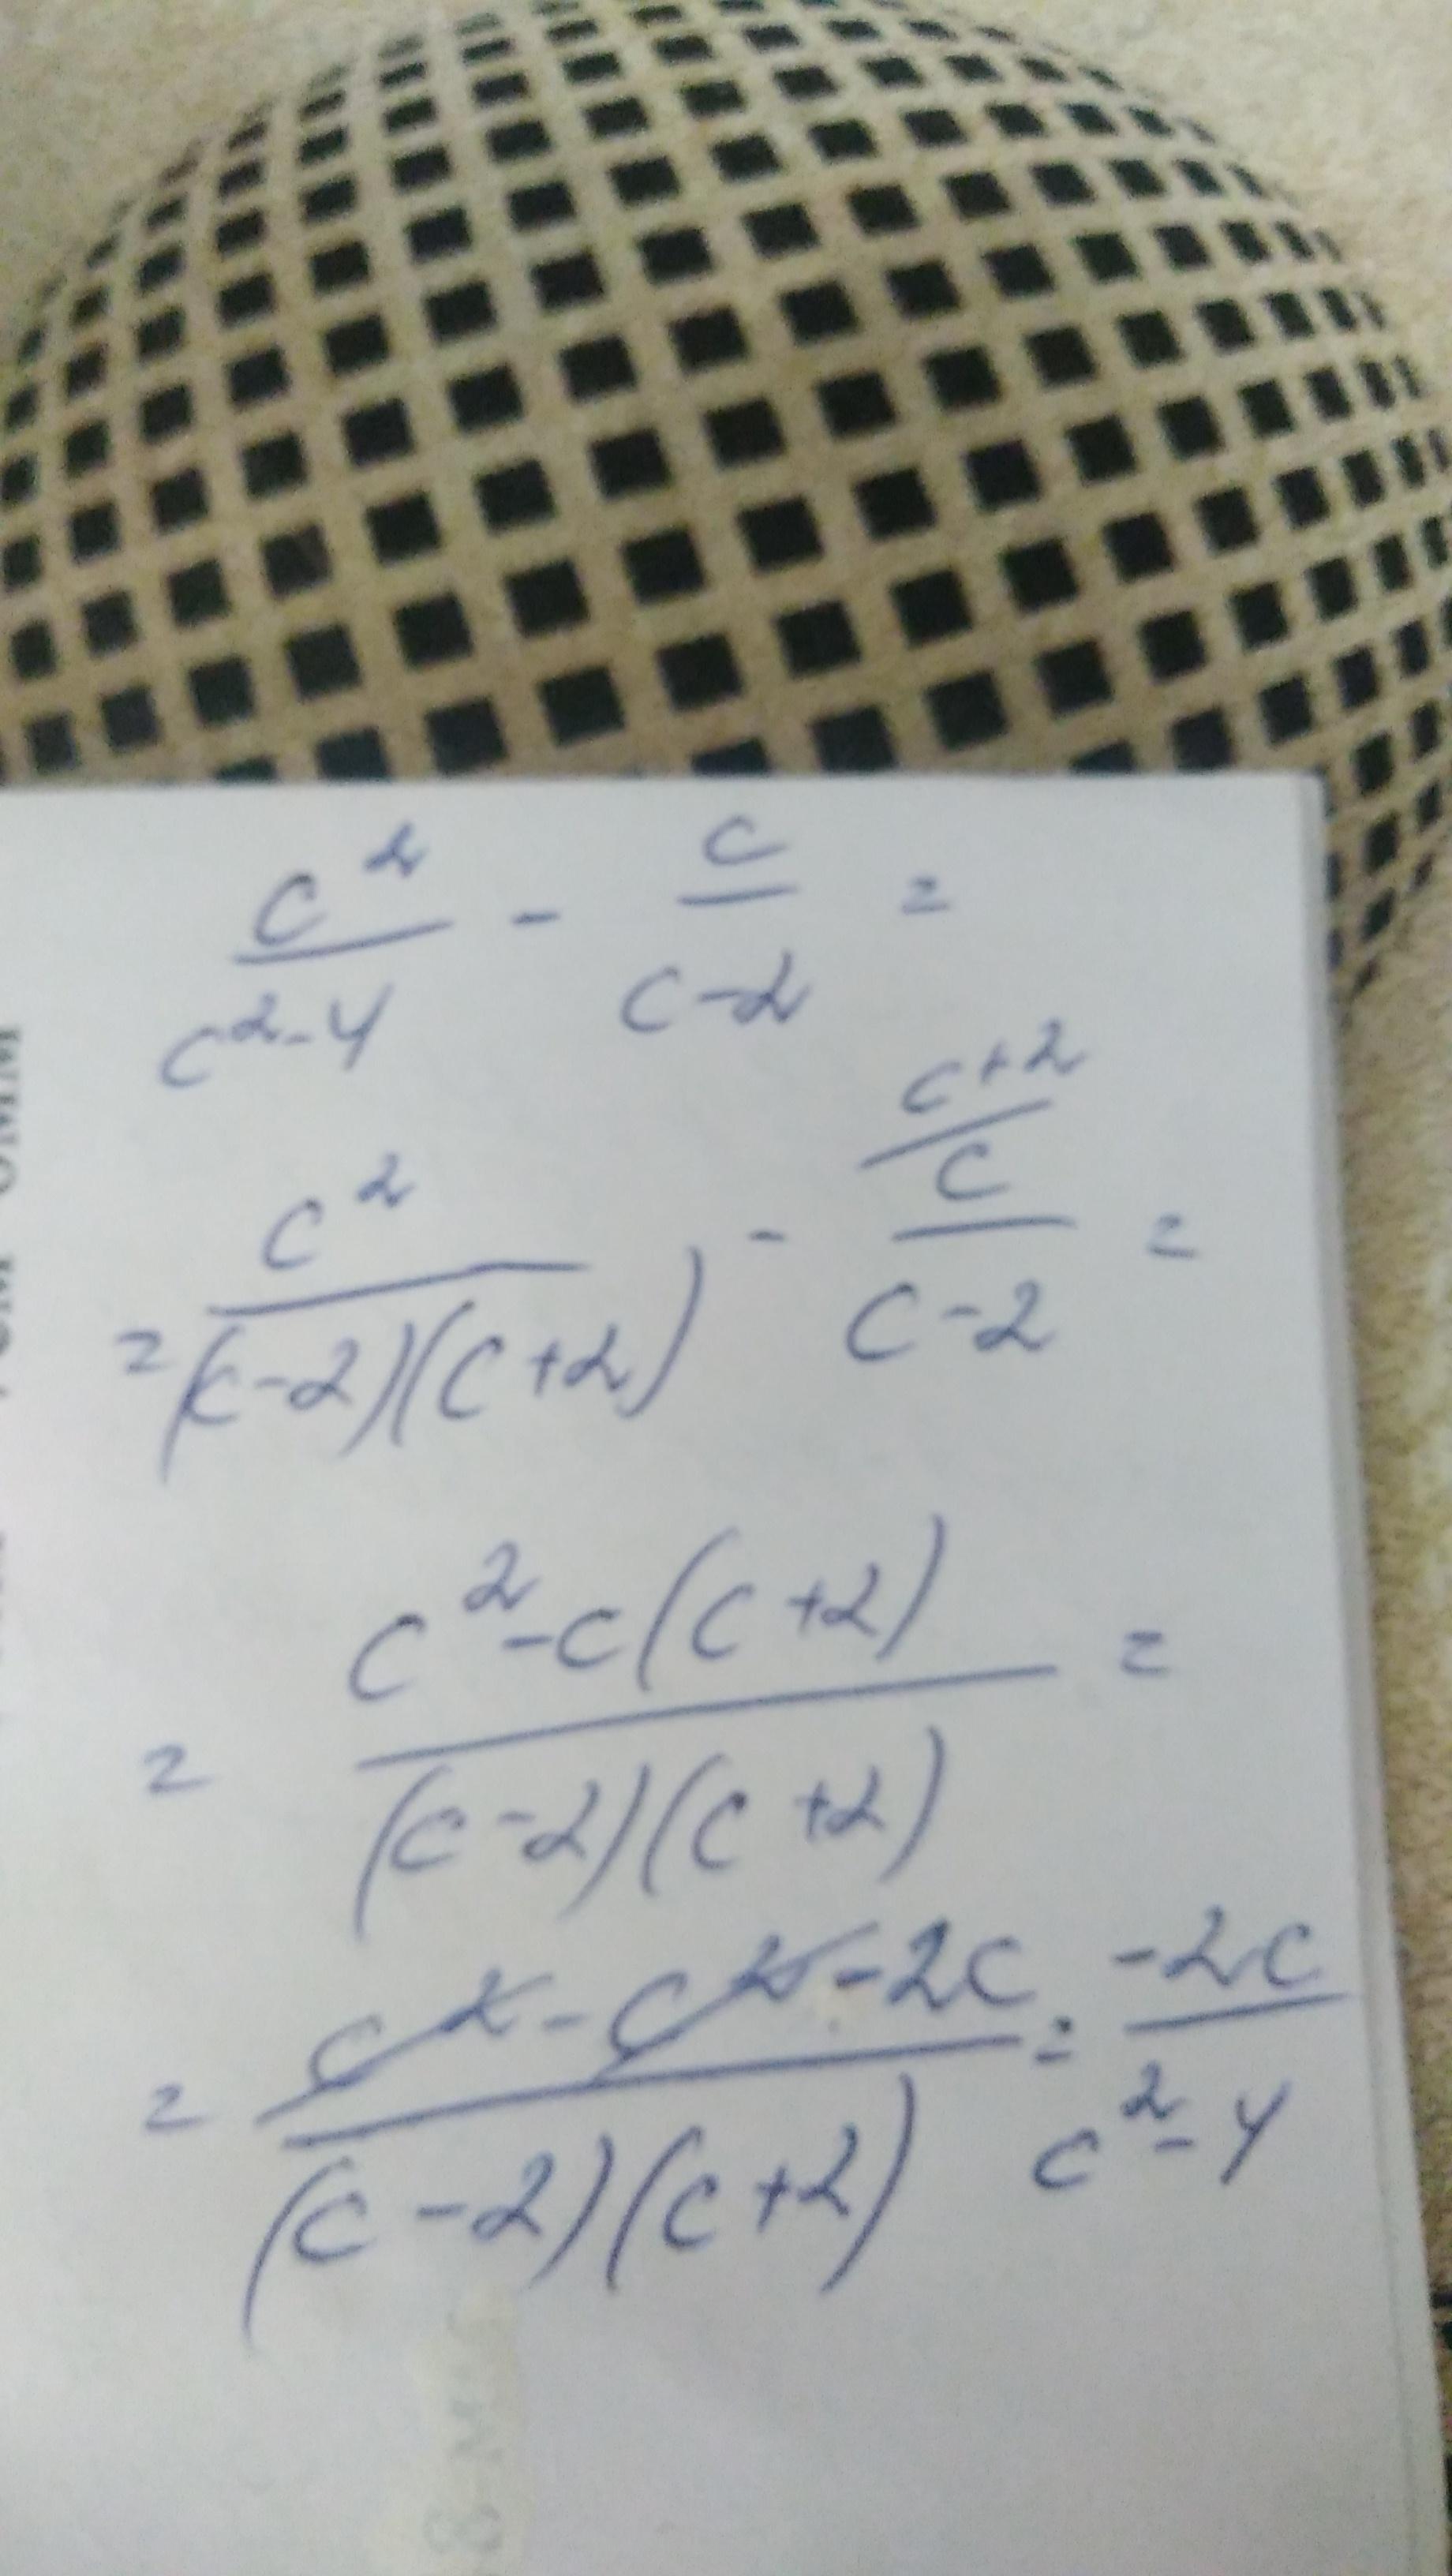 c²/(c²-4) - c/(c-2) =
= c²/((c-2)(c+2)) - c+2/ c/(c-2) =
= (c²-c(c+2))/((c-2)(c+2)) =
= (c²-c²-2c)/((c-2)(c+2)) = -2c/(c²-4)